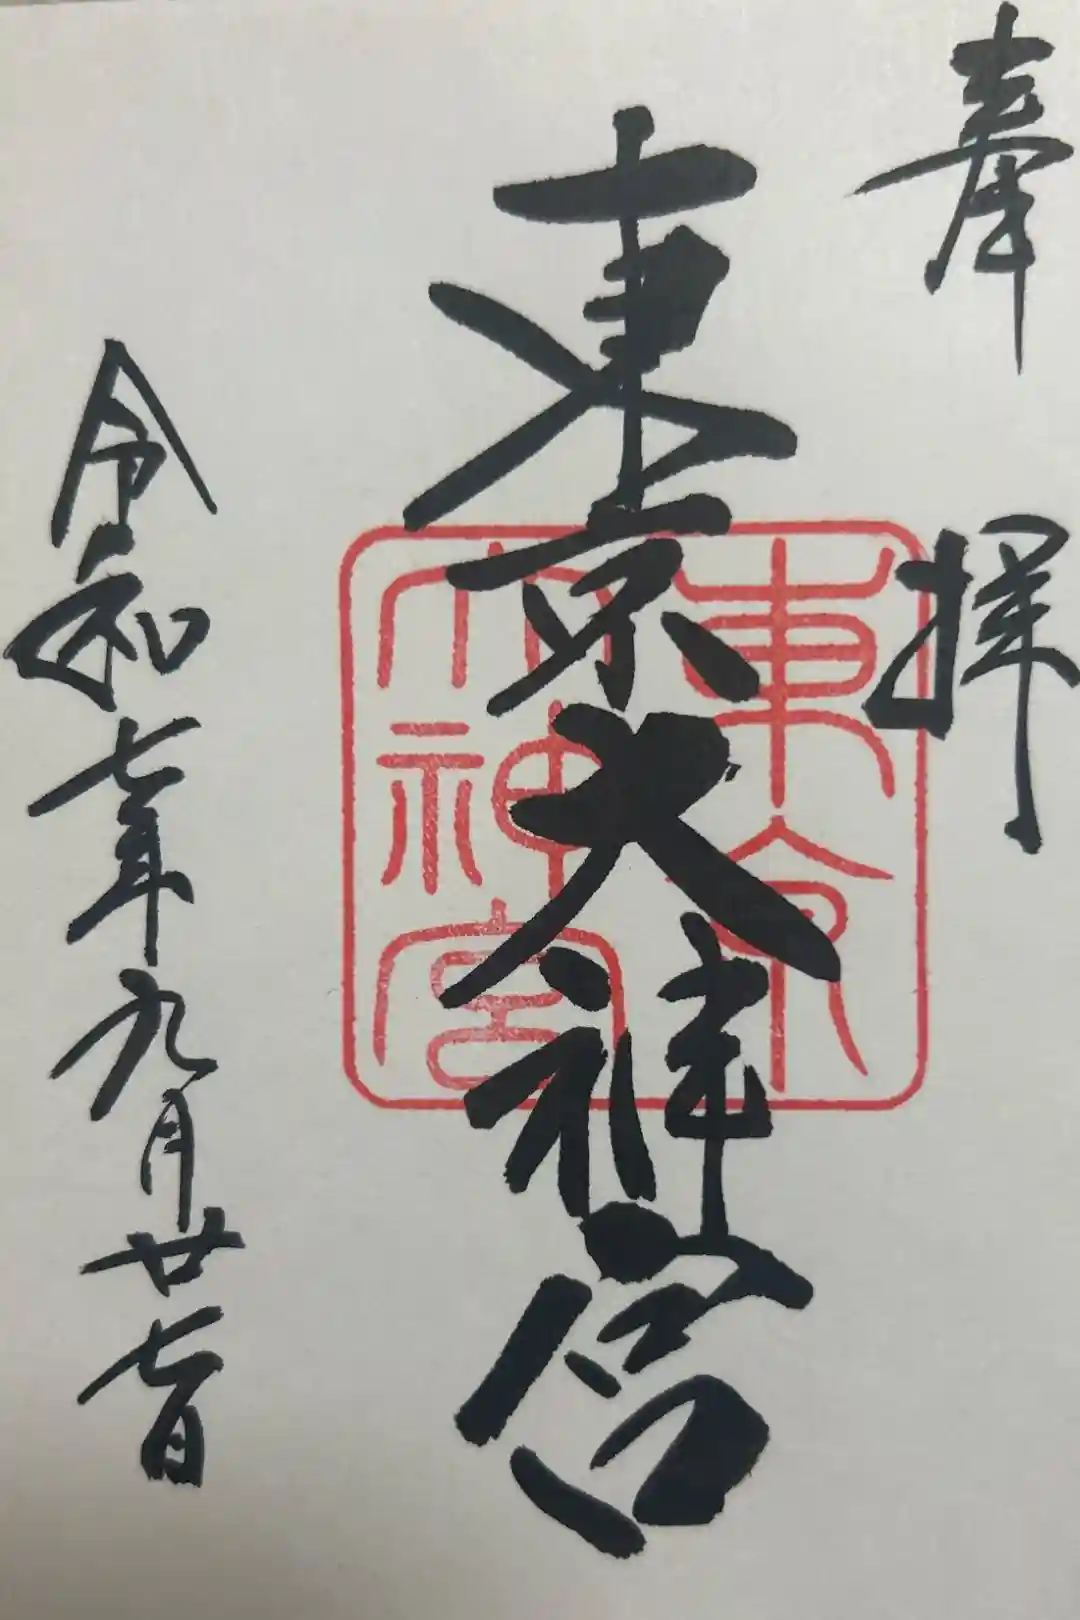 奉拝
東京大神宮
東京
大神宮
令和七年九月廿七日